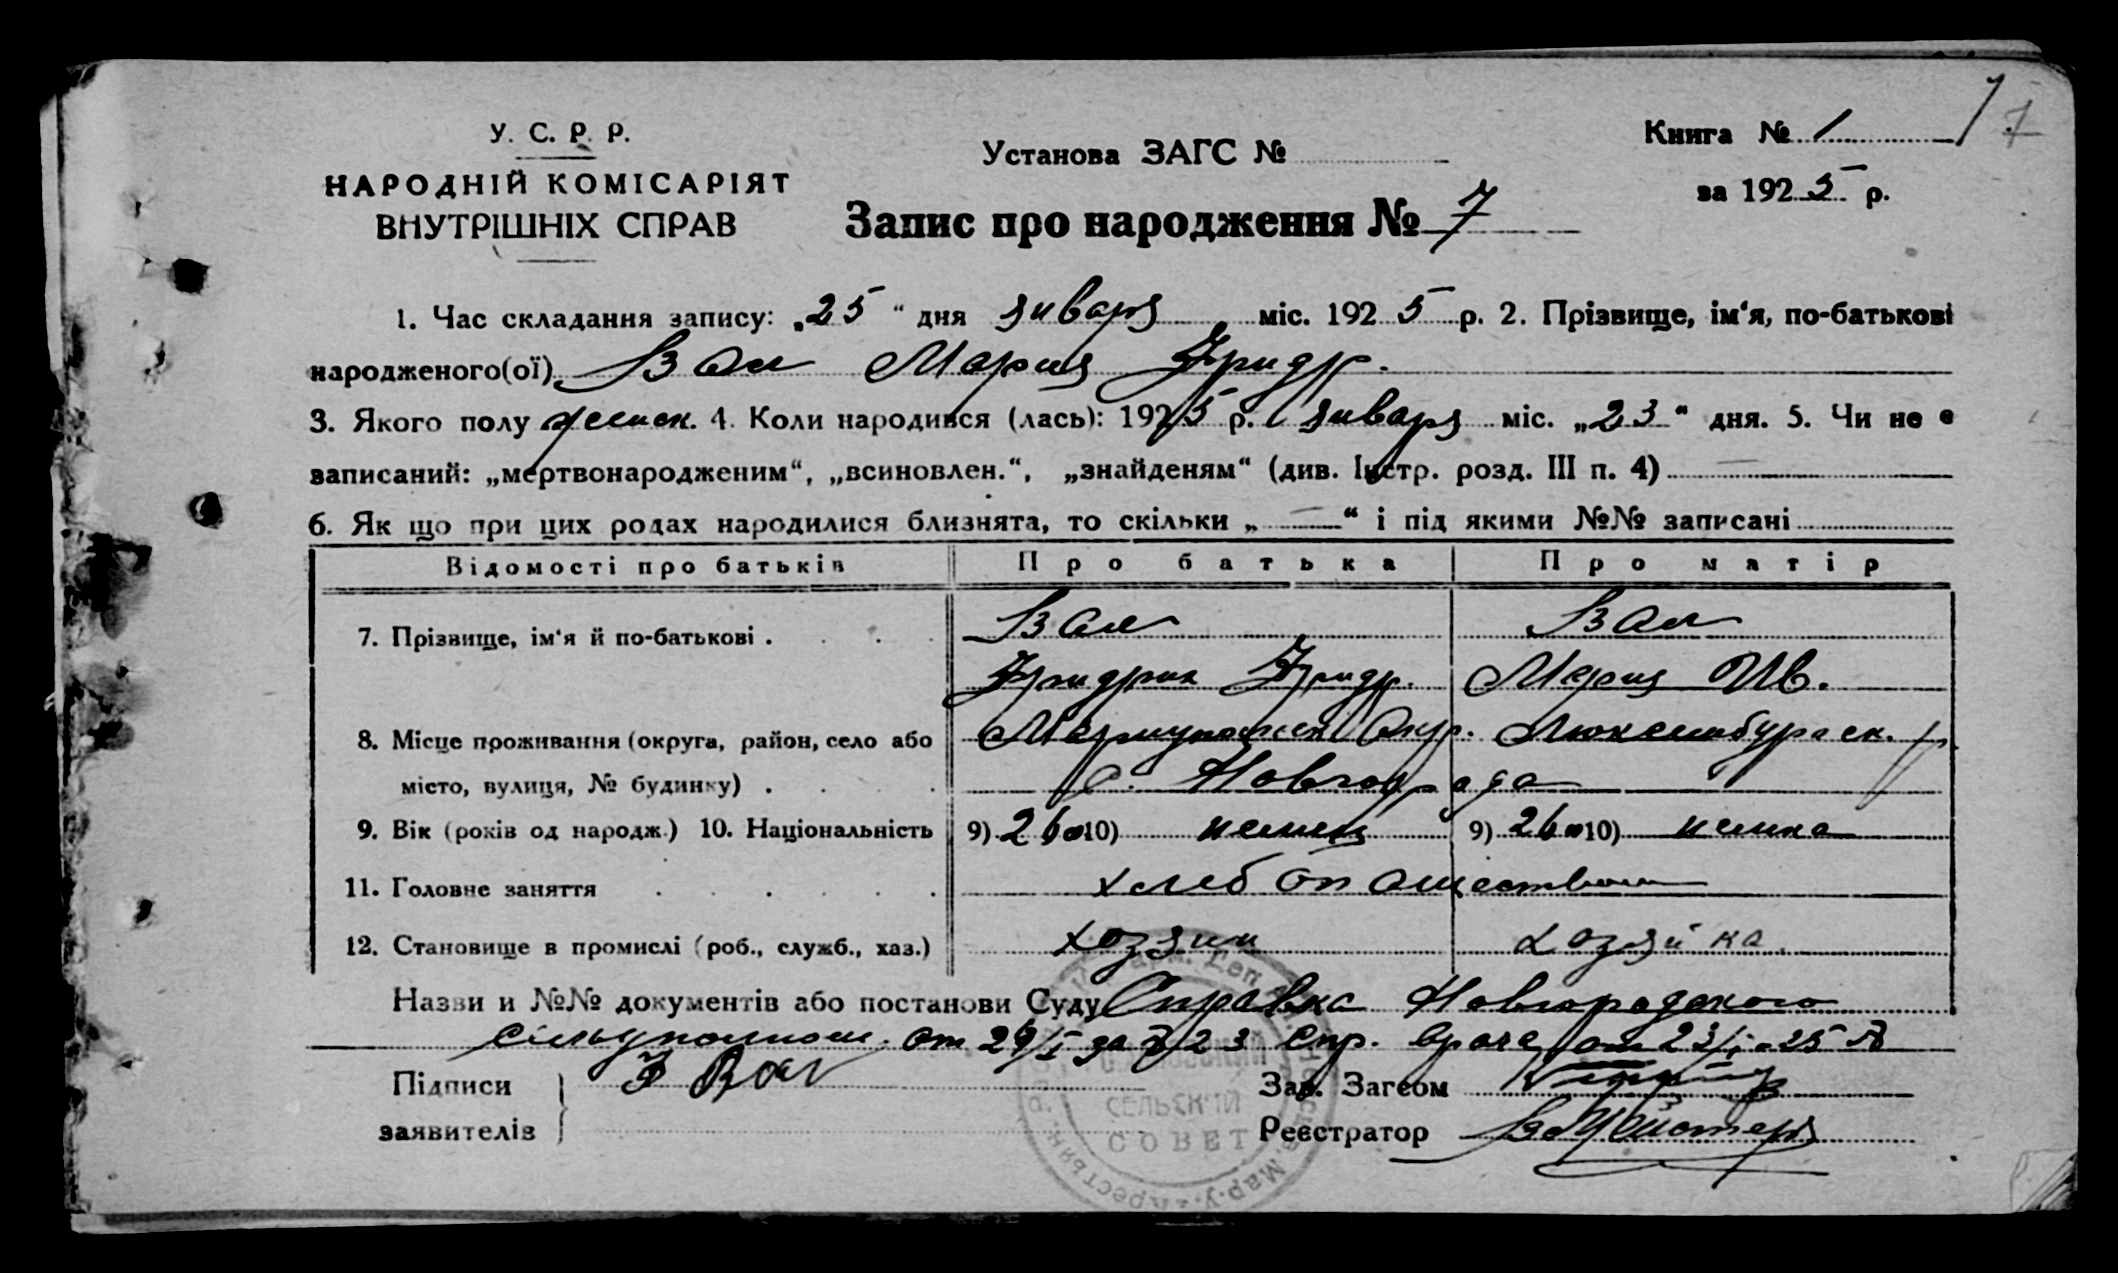 У. С. Р. Р.
НАРОДНІЙ КОМІСАРІЯТ
ВНУТРІШНІХ СПРАВ
Установа ЗАГС №
Запис про народження № 7
Книга № 1
за 1925 р.
7
1. Час складання запису: „25“ дня января міс. 1925 р. 2. Прізвище, ім‘я, по-батькові
народженого(ої) Вал Мария Фридр.
3. Якого полу женск. 4. Коли народився (лась): 1925 р. января міс. „23“ дня. 5. Чи не є
записаний: „мертвонародженим“, „всиновлен.“, „знайденям“ (див. Інстр. розд. III п. 4) —
6. Як що при цих родах народилися близнята, то скільки „—“ і під якими №№ записані
Відомості про батьків Про батька Про матір
7. Прізвище, ім‘я й по-батькові . Вал Вал
Фридрих Фридр. Мария Ив.
8. Місце проживання (округа, район, село або Мариупольск. Окр. Люксембургск. р.
місто, вулиця, № будинку) . с. Новгорода
9. Вік (років од народж.) 10. Національність 9) 26 10) немец 9) 26 10) немка
11. Головне заняття хлебопашество
12. Становище в промислі (роб., служб., хаз.) хозяин хозяйка
Назви и №№ документів або постанови Суду Справка Новгородского
сільуполном. от 24/I за № 23 Спр. врача от 23/I - 25
Підписи
заявителів
Зав. Загсом
Реєстратор
СЕЛЬСКИЙ
СОВЕТ